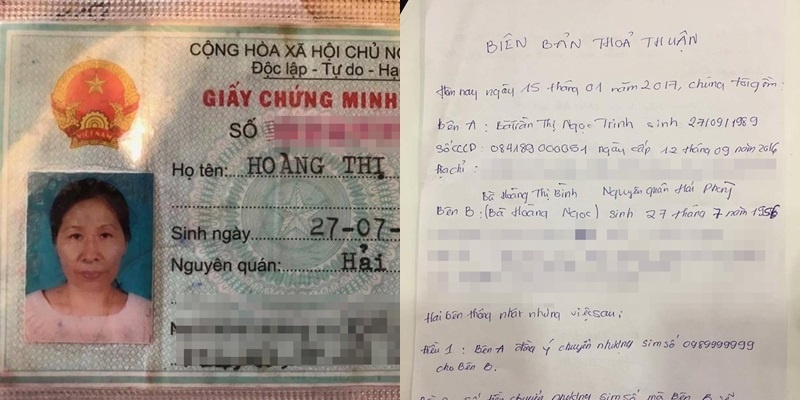 CỘNG HÒA XÃ HỘI CHỦ NG
Độc lập - Tự do - Hạ
GIẤY CHỨNG MINH
SỐ
VIỆT NAM
Họ tên: HOÀNG THỊ
Sinh ngày 27-07-
Nguyên quán: Hải
BIÊN BẢN THOẢ THUẬN
Hôm nay ngày 15 tháng 01 năm 2017, chúng tôi gồm:
Bên A: Bà Trần Thị Ngọc Trinh sinh 27/09/1989
Số CCCD: 084189000051 ngày cấp 12 tháng 09 năm 2016
Địa chỉ:
Bà Hoàng Thị Bình Nguyên quán Hải Phòng
Bên B: (Bà Hoàng Ngọc) sinh 27 tháng 7 năm 1956
Hai bên thống nhất những việc sau:
Điều 1: Bên A đồng ý chuyển nhượng sim số 0989999999
cho Bên B.
số tiền chuyển nhượng sim số mà Bên B